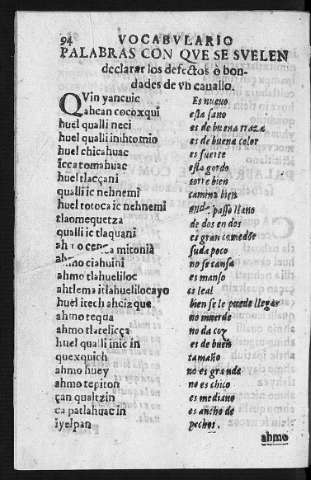 94 VOCABVLARIO
PALABRAS CON QVE SE SVELEN
declarar los defectos o bon-
dades de vn cauallo.
QVin yancuic Es nueuo
ahcan cocoxqui esta sano
huel qualli neci es de buena traza
huel qualli inihtomio es de buena color
huel chicahuac es fuerte
icecatomahuac esta gordo
huel tlacçani corre bien
qualli ic nehnemi camina bien
huel totoca ic nehnemi anda passo llano
tlaomequetza de dos en dos
qualli ic tlaquani es gran comedor
mitonia suda poco
ahmo ciahuini no se cansa
ahmo tlahueliloc es manso
ahtlema itlahuelilocayo es leal
huel itech ahcizque bien se le puede llegar
ahmo tequa no muerde
ahmo tlatelicça no da coz
huel qualli inic in es de buen
quexquich tamaño
ahmo huey no es grande
ahmo tepiton no es chico
çan qualtzin es mediano
ca patlahuac in es ancho de
iyelpan pechos.
ahmo